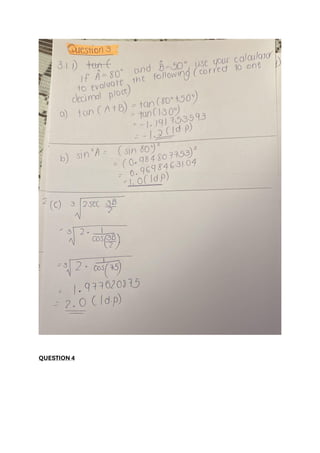 Question 3
3.1 1) tan (
If Â = 80° and B̂ = 50°, use your calculator
to evaluate the following (correct to one
decimal place)
a) tan (A+B) = tan (80°+50°)
= tan (130°)
= -1.191753593
= -1.2 (1dp)
b) sin²A = (sin 80°)²
= (0.984807753)²
= 0.9698463104
= 1.0 (1dp)
(c) ³√2sec 3B/2
= ³√2 · 1/cos(3B/2)
= ³√2 · 1/cos(75)
= 1.977020875
= 2.0 (1dp)
QUESTION 4